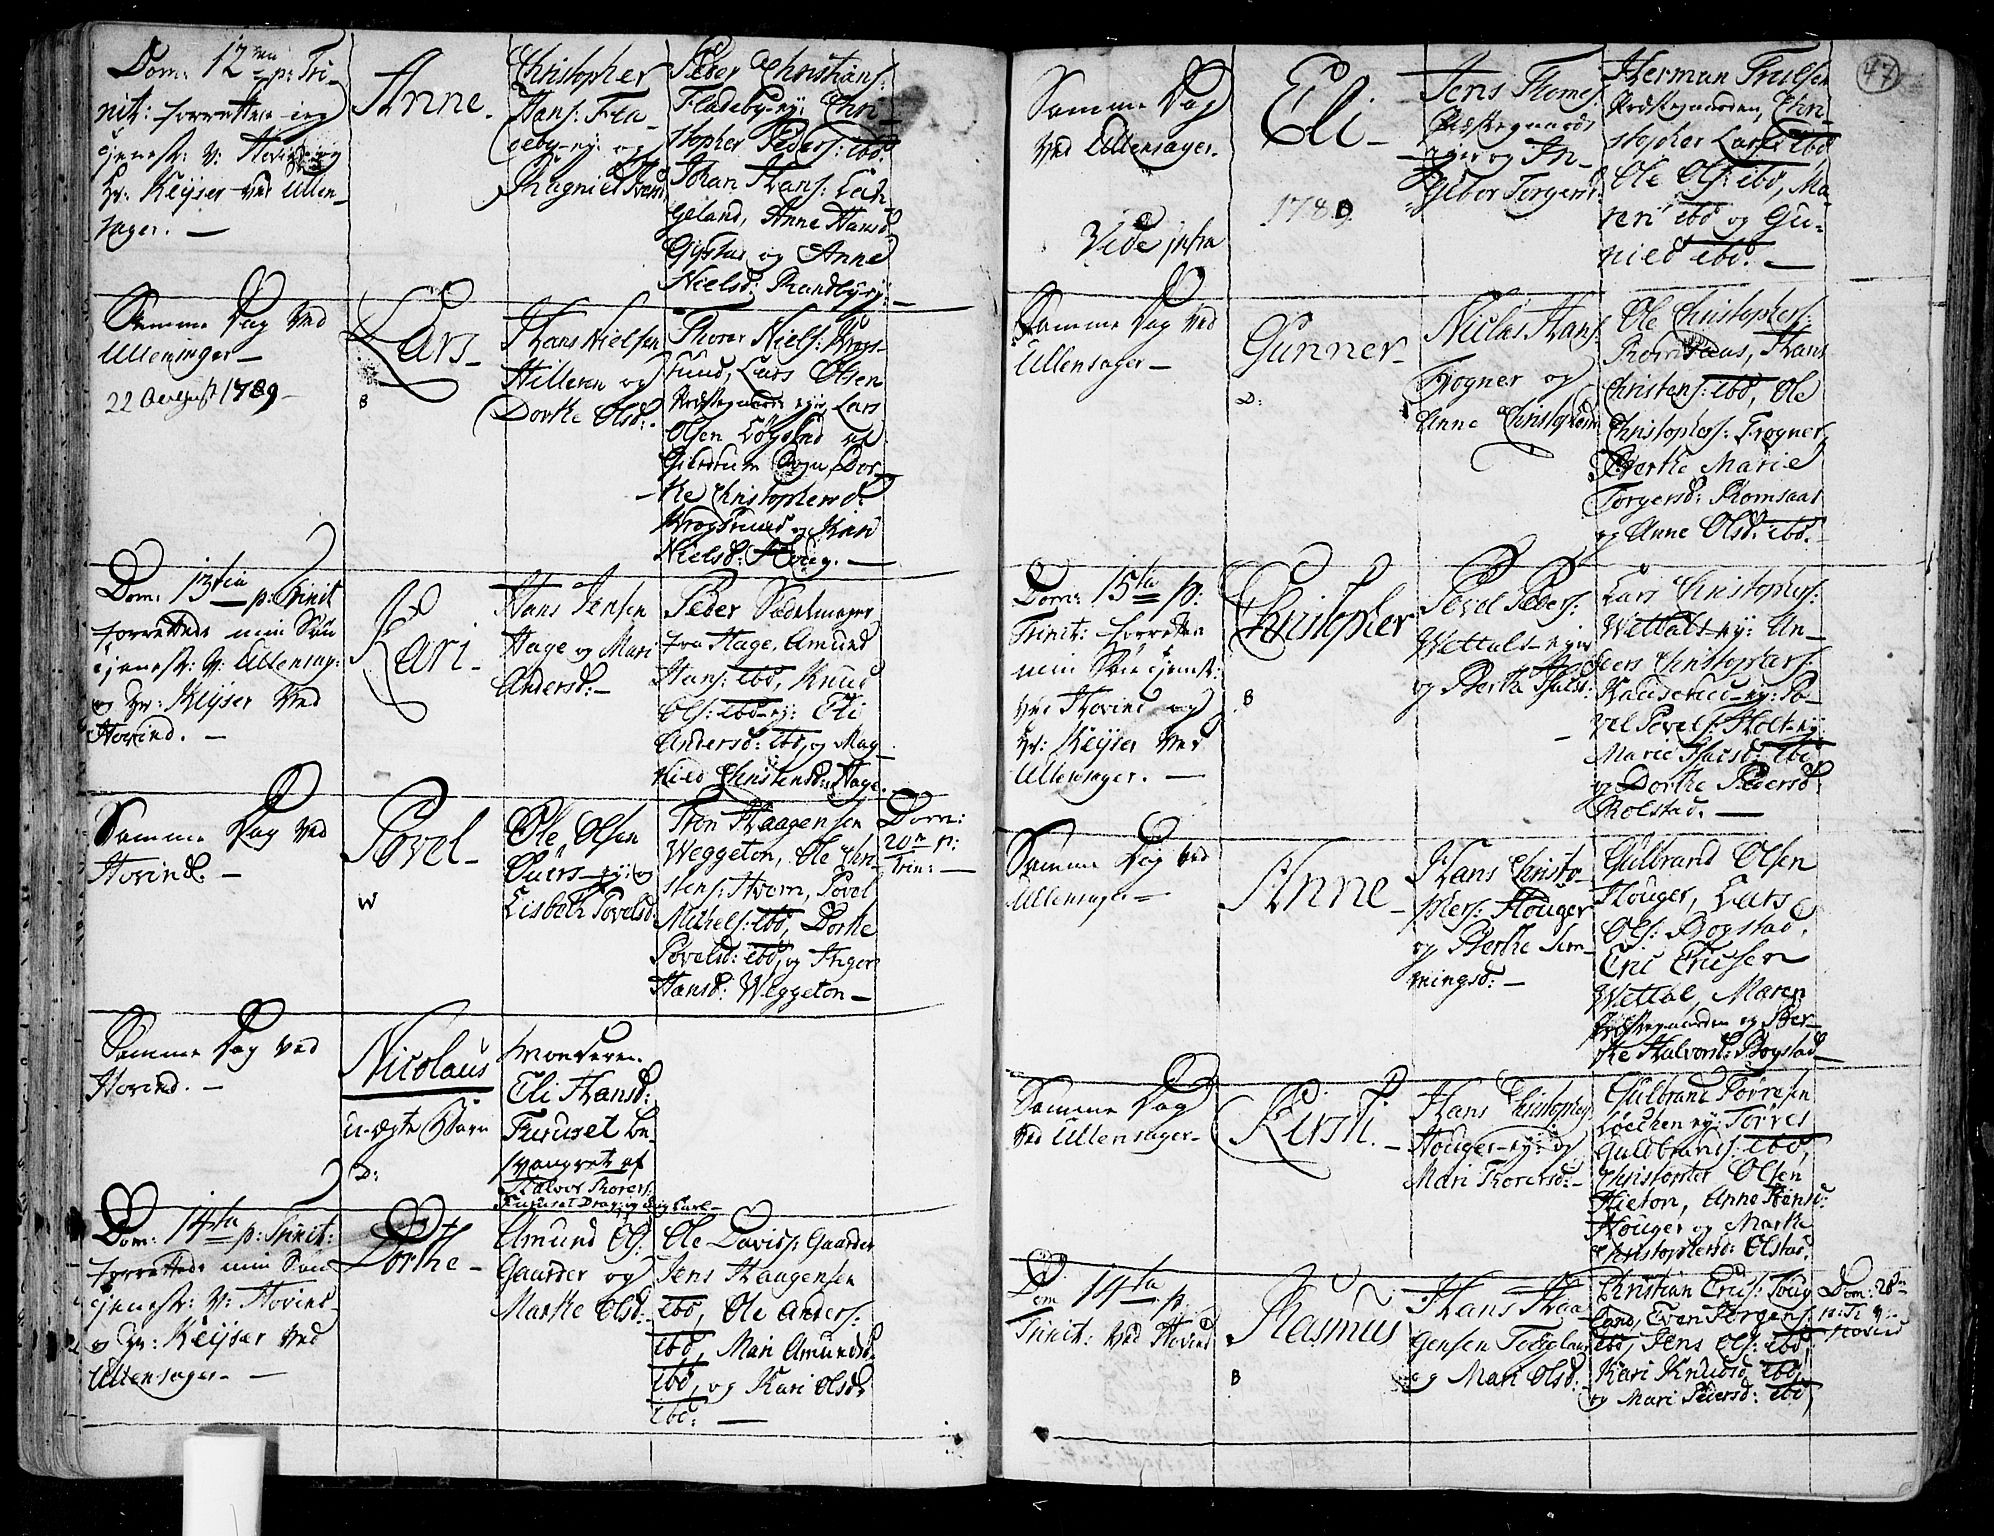 Dom: 12 p: Tri-
nit: forrettede
tienest: v:
Hr: Keyser ved Ullen-
sager. —
Anne.
Christopher
Hans:
og
Peder Christians:
Fladeby-ej: Chri-
stopher Peders: ibd:
Johan Hans:
Anne Hansd:
og Anne
Nielsd: Randbye ej: —
Samme Dag ved
Ullensager —
22 August 1789
Lars —
B
Hans Nielsen
Hilleren og
Dorthe Olsd:
Thorer Niels: Krogs-
rund, Lars Olsen
Lars
Olsen
Gierdrum Sogn, Dor-
the Christophersd:
Krogsrund og Kari
Nielsd: Hovig. —
Dom: 13tia p: Trinit
forrettede min Søn
tienest: v: Ullensag:
og Hr: Keyser ved
Hovind. —
Kari —
Hans Jensen
Hage og Mari
Andersd: —
Peder Sadelmager
fra Hage, Amund
Hans: ibd, Knud
Ols: ibd-ej: Eli
Andersd: ibd, og Mag-
nild Christensd: Hage.
Samme Dag ved
Hovind. —
Povel —
W
Ole Olsen
ej: og
Lisbeth Povelsd:
Tron Haagensen
Weggeton, Ole Chri-
stens: Hvam, Povel
Michels: ibd, Dorthe
Povelsd: ibd, og Inger
Hansd: Weggeton —
Dom:
20 p:
Trin: —
Samme Dag ved
Hovind. —
Nicolaus
uægte Barn
D:
Eli Hansd:
Furuset be-
svangret af
Halvor Thorers:
Furuset Dragon
Dom: 14ta p: Trinit:
forrettede min Søn
tienest: v: Hovind-
og Hr: Keyser ved
Ullensager — —
Dorthe —
Amund Ols:
Gaarder og
Marthe Olsd: —
Ole Davids: Gaarder
Jens Haagensen
ibd, Ole Anders:
ibd, Mari Amundsd:
ibd, og Kari Olsd:
ibd: —
47
Samme Dag
ved Ullensager.
Vide infra
Eli —
1789
Jens
Præstegaards
-ejer og In-
geborg Torgersd:
Herman Truelsen
Præstegaarden, Chri-
stopher Larsen ibd
Ole Ols: ibd, Ma-
ren ibd og Gu-
nild ibd. —
Samme Dag ved
Ullensager —
Gunner —
D:
Niclas Hans:
Frogner og
Anne Christophersd:
Ole Christophers:
Romsaas, Hans
Christens: ibd, Ole
Christophers: Frogner,
Berthe Marie
Torgersd: Romsaas
og Anne Olsd: ibd. —
Dom: 15ta p:
Trinit: forrettede
min Søn tienest:
ved Hovind og
Hr: Keyser ved
Ullensager. —
Christopher
B
Povel Peders:
Wettals-ejer
og Berthe
Lars Christophers:
Wettals-ej: An-
ders Christophers:
ej: Po-
vel Povels: Holt-ej:
Marie ibd:
og Dorthe Pedersd:
Rolstad. —
Samme Dag ved
Ullensager —
Anne —
Hans Christo-
phers: Houger
og Berthe Sem-
mingsd: —
Gulbrand Olsen
Houger, Lars
Ols: Bogstad,
Eric Ericsen
Wettal, Maren
Præstegaarden og Ber-
the Halvorsd: Bogstad —
Samme Dag
ved Ullensager —
Kirsti. —
Hans Christophers:
Houger-ej: og
Mari Thorersd: —
Gulbrand Torresen
Løechen ej: Torres
Guldbrands: ibd,
Christopher Olsen
Hieton, Anne Hansd:
Houger og Marthe
Christophersd: Olstad.
Dom 14ta p
Trinit: ved Hovind
Rasmus
B
Hans Haa-
gensen
og Mari Olsd:
Christian Erics:
Even Jørgens:
ibd, Jens Ols: ibd,
Kari Knudsd: ibd,
og Mari Pedersd: ibd,
Dom: 20
p: Tr: v:
Hovind